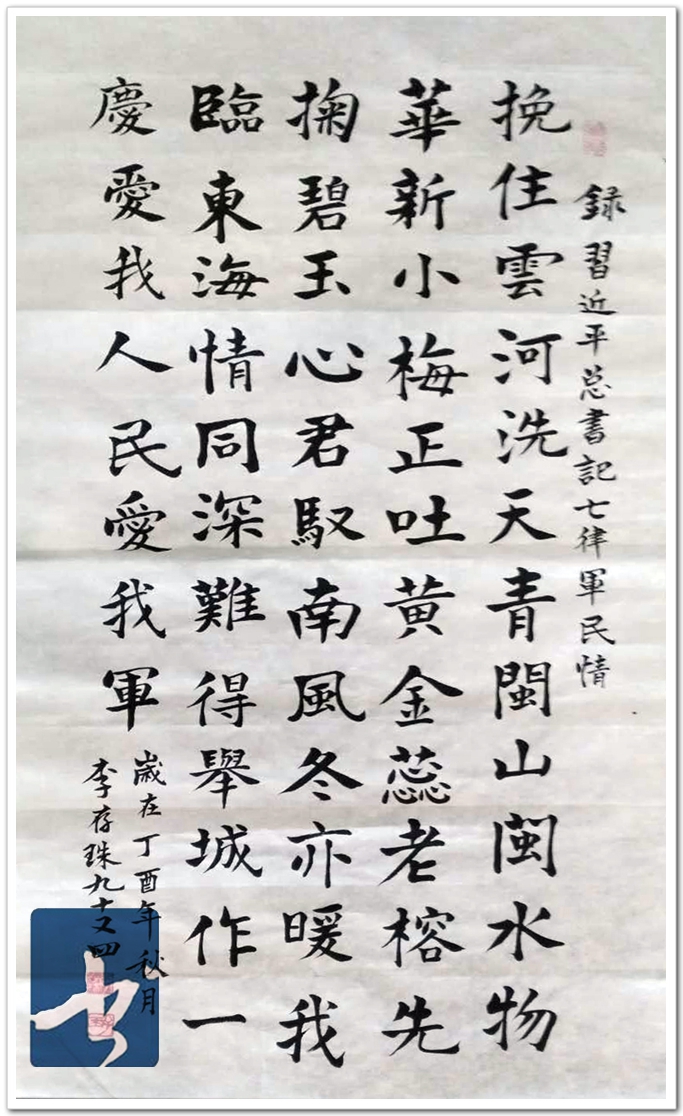 録習近平总書記七律軍民情
挽住雲河洗天青閩山閩水物
華新小梅正吐黄金蕊老榕先
掬碧玉心君馭南風冬亦暖我
臨東海情同深難得舉城作一
慶愛我人民愛我軍
歲在丁酉年秋月
李存珠九十又四